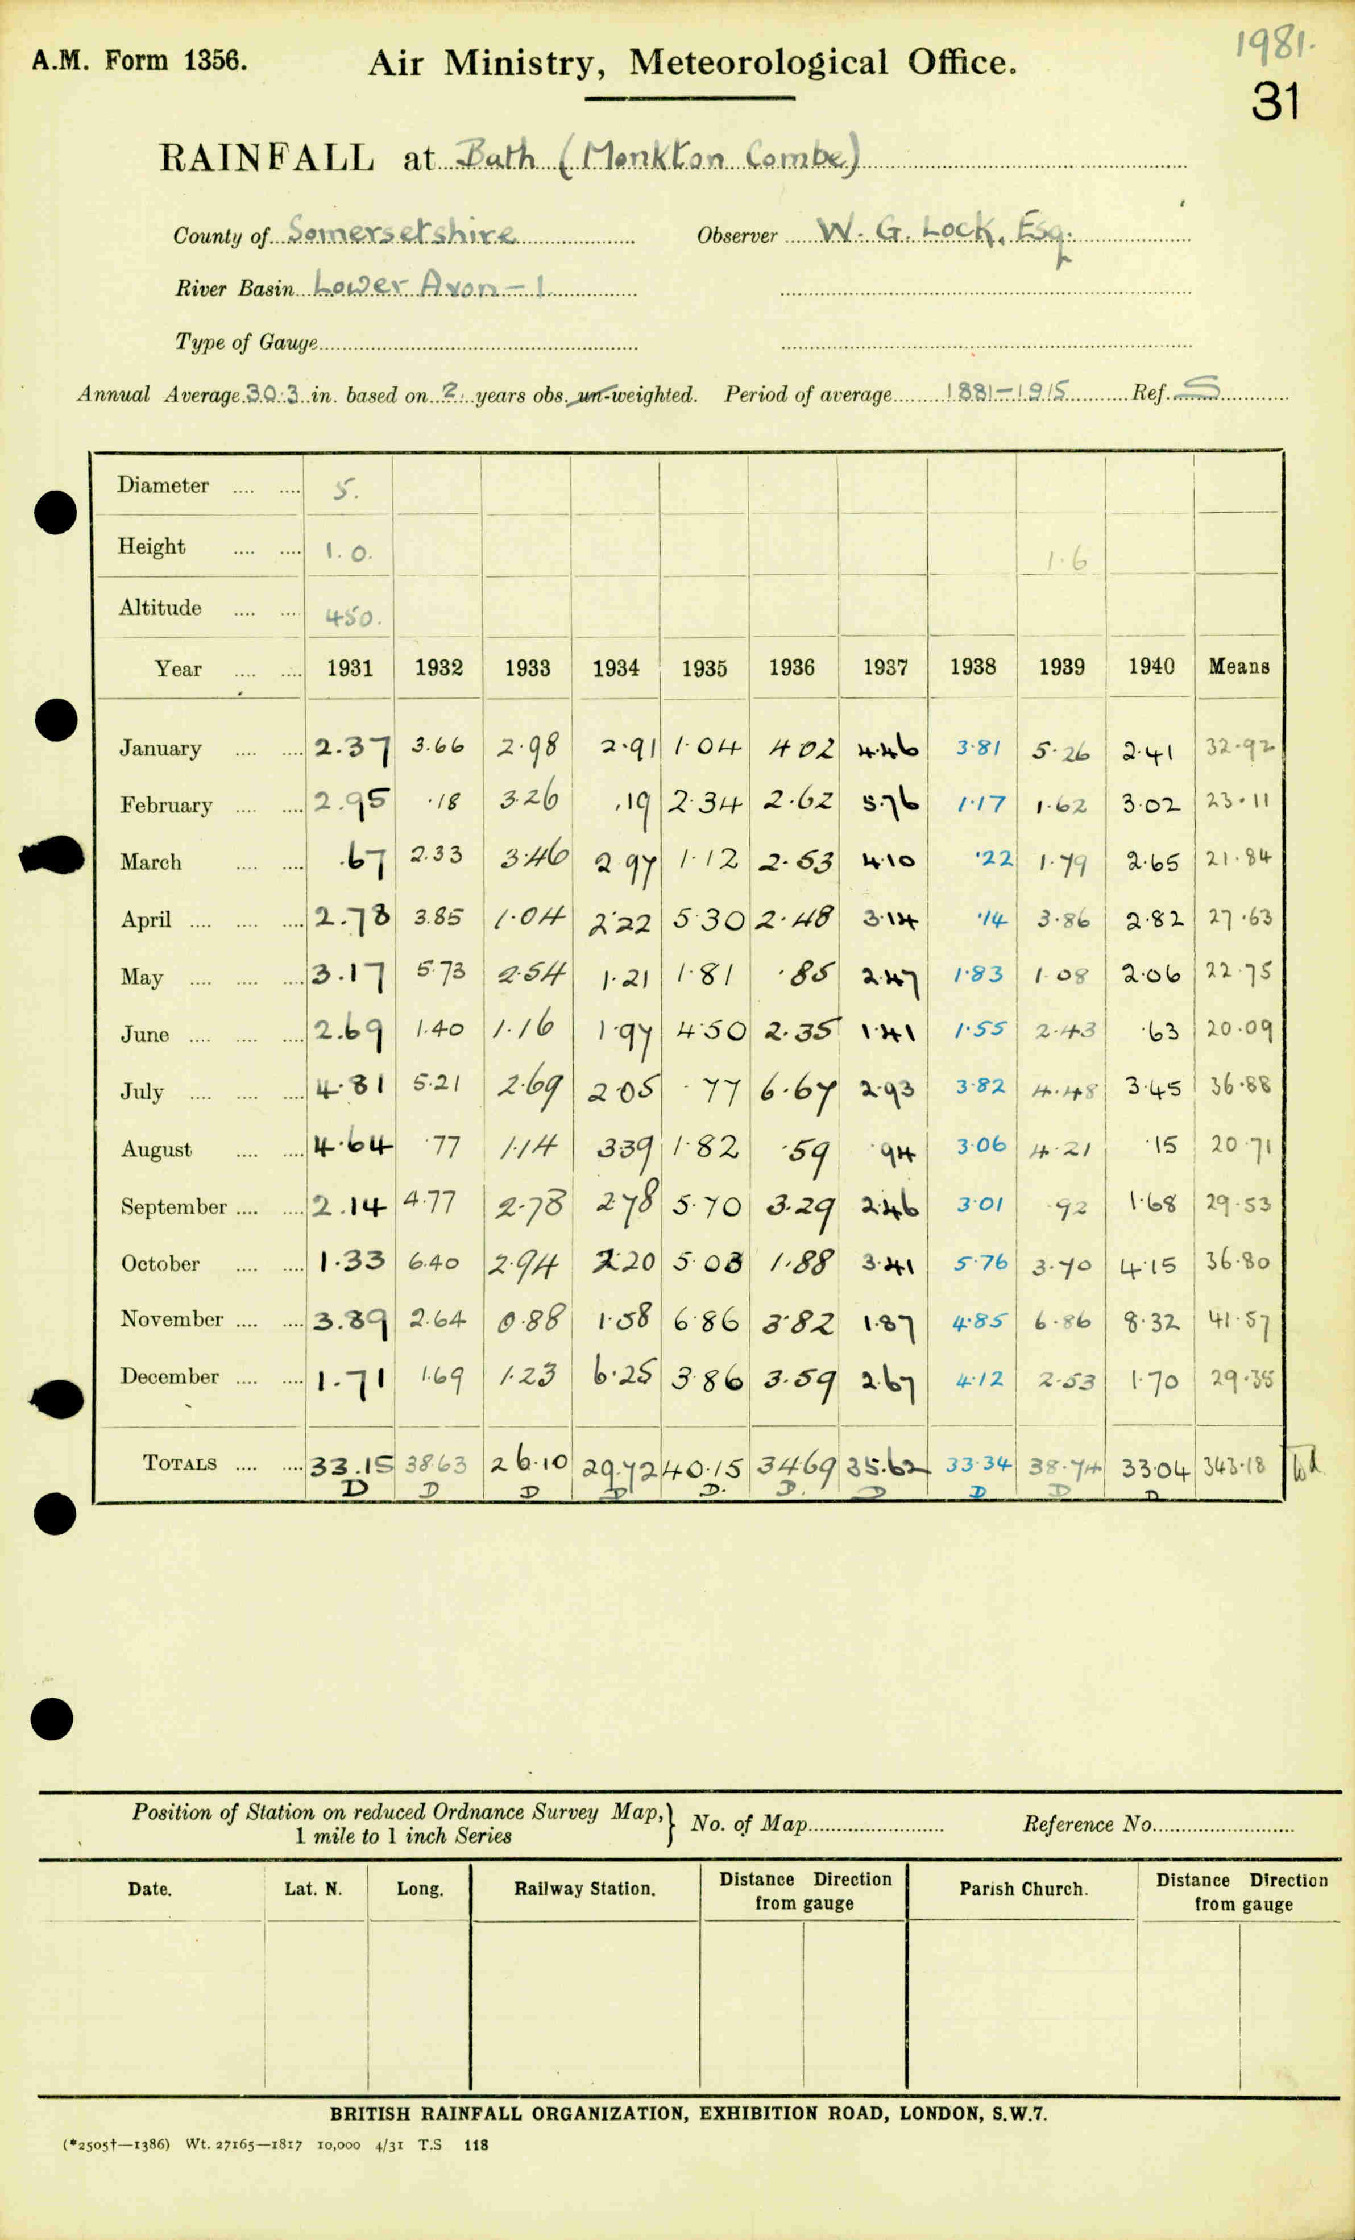 1981.
A.M. Form 1356. Air Ministry, Meteorological Office.
31
RAINFALL at Bath (Monkton Combe)
County of Somersetshire Observer W. G. Lock, Esq.
River Basin Lower Avon – 1
Type of Gauge
Annual Average 30.3 in. based on 2 years obs. un-weighted. Period of average 1881–1915 Ref. S
Diameter 5.
Height 1.0. 1.6
Altitude 450.
Year 1931 1932 1933 1934 1935 1936 1937 1938 1939 1940 Means
January 2.37 3.66 2.98 2.91 1.04 4.02 4.46 3.81 5.26 2.41 32.92
February 2.95 .18 3.26 .19 2.34 2.62 5.76 1.17 1.62 3.02 23.11
March .67 2.33 3.46 2.97 1.12 2.53 4.10 .22 1.79 2.65 21.84
April 2.78 3.85 1.04 2.22 5.30 2.48 3.14 .14 3.86 2.82 27.63
May 3.17 5.73 2.54 1.21 1.81 .85 2.47 1.83 1.08 2.06 22.75
June 2.69 1.40 1.16 1.97 4.50 2.35 1.41 1.55 2.43 .63 20.09
July 4.81 5.21 2.69 2.05 .77 6.67 2.93 3.82 4.48 3.45 36.88
August 4.64 .77 1.14 3.39 1.82 .59 .94 3.06 4.21 .15 20.71
September 2.14 4.77 2.78 2.78 5.70 3.29 2.46 3.01 .92 1.68 29.53
October 1.33 6.40 2.94 2.20 5.03 1.88 3.41 5.76 3.70 4.15 36.80
November 3.89 2.64 0.88 1.58 6.86 3.82 1.87 4.85 6.86 8.32 41.57
December 1.71 1.69 1.23 6.25 3.86 3.59 2.67 4.12 2.53 1.70 29.35
TOTALS 33.15 38.63 26.10 29.72 40.15 34.69 35.62 33.34 38.74 33.04 343.18
D D D D D. D. D D D D
Position of Station on reduced Ordnance Survey Map,} No. of Map Reference No.
1 mile to 1 inch Series
Date. Lat. N. Long. Railway Station. Distance Direction from gauge Parish Church. Distance Direction from gauge
BRITISH RAINFALL ORGANIZATION, EXHIBITION ROAD, LONDON, S.W.7.
(*2505†—1386) Wt. 27165—1817 10,000 4/31 T.S 118